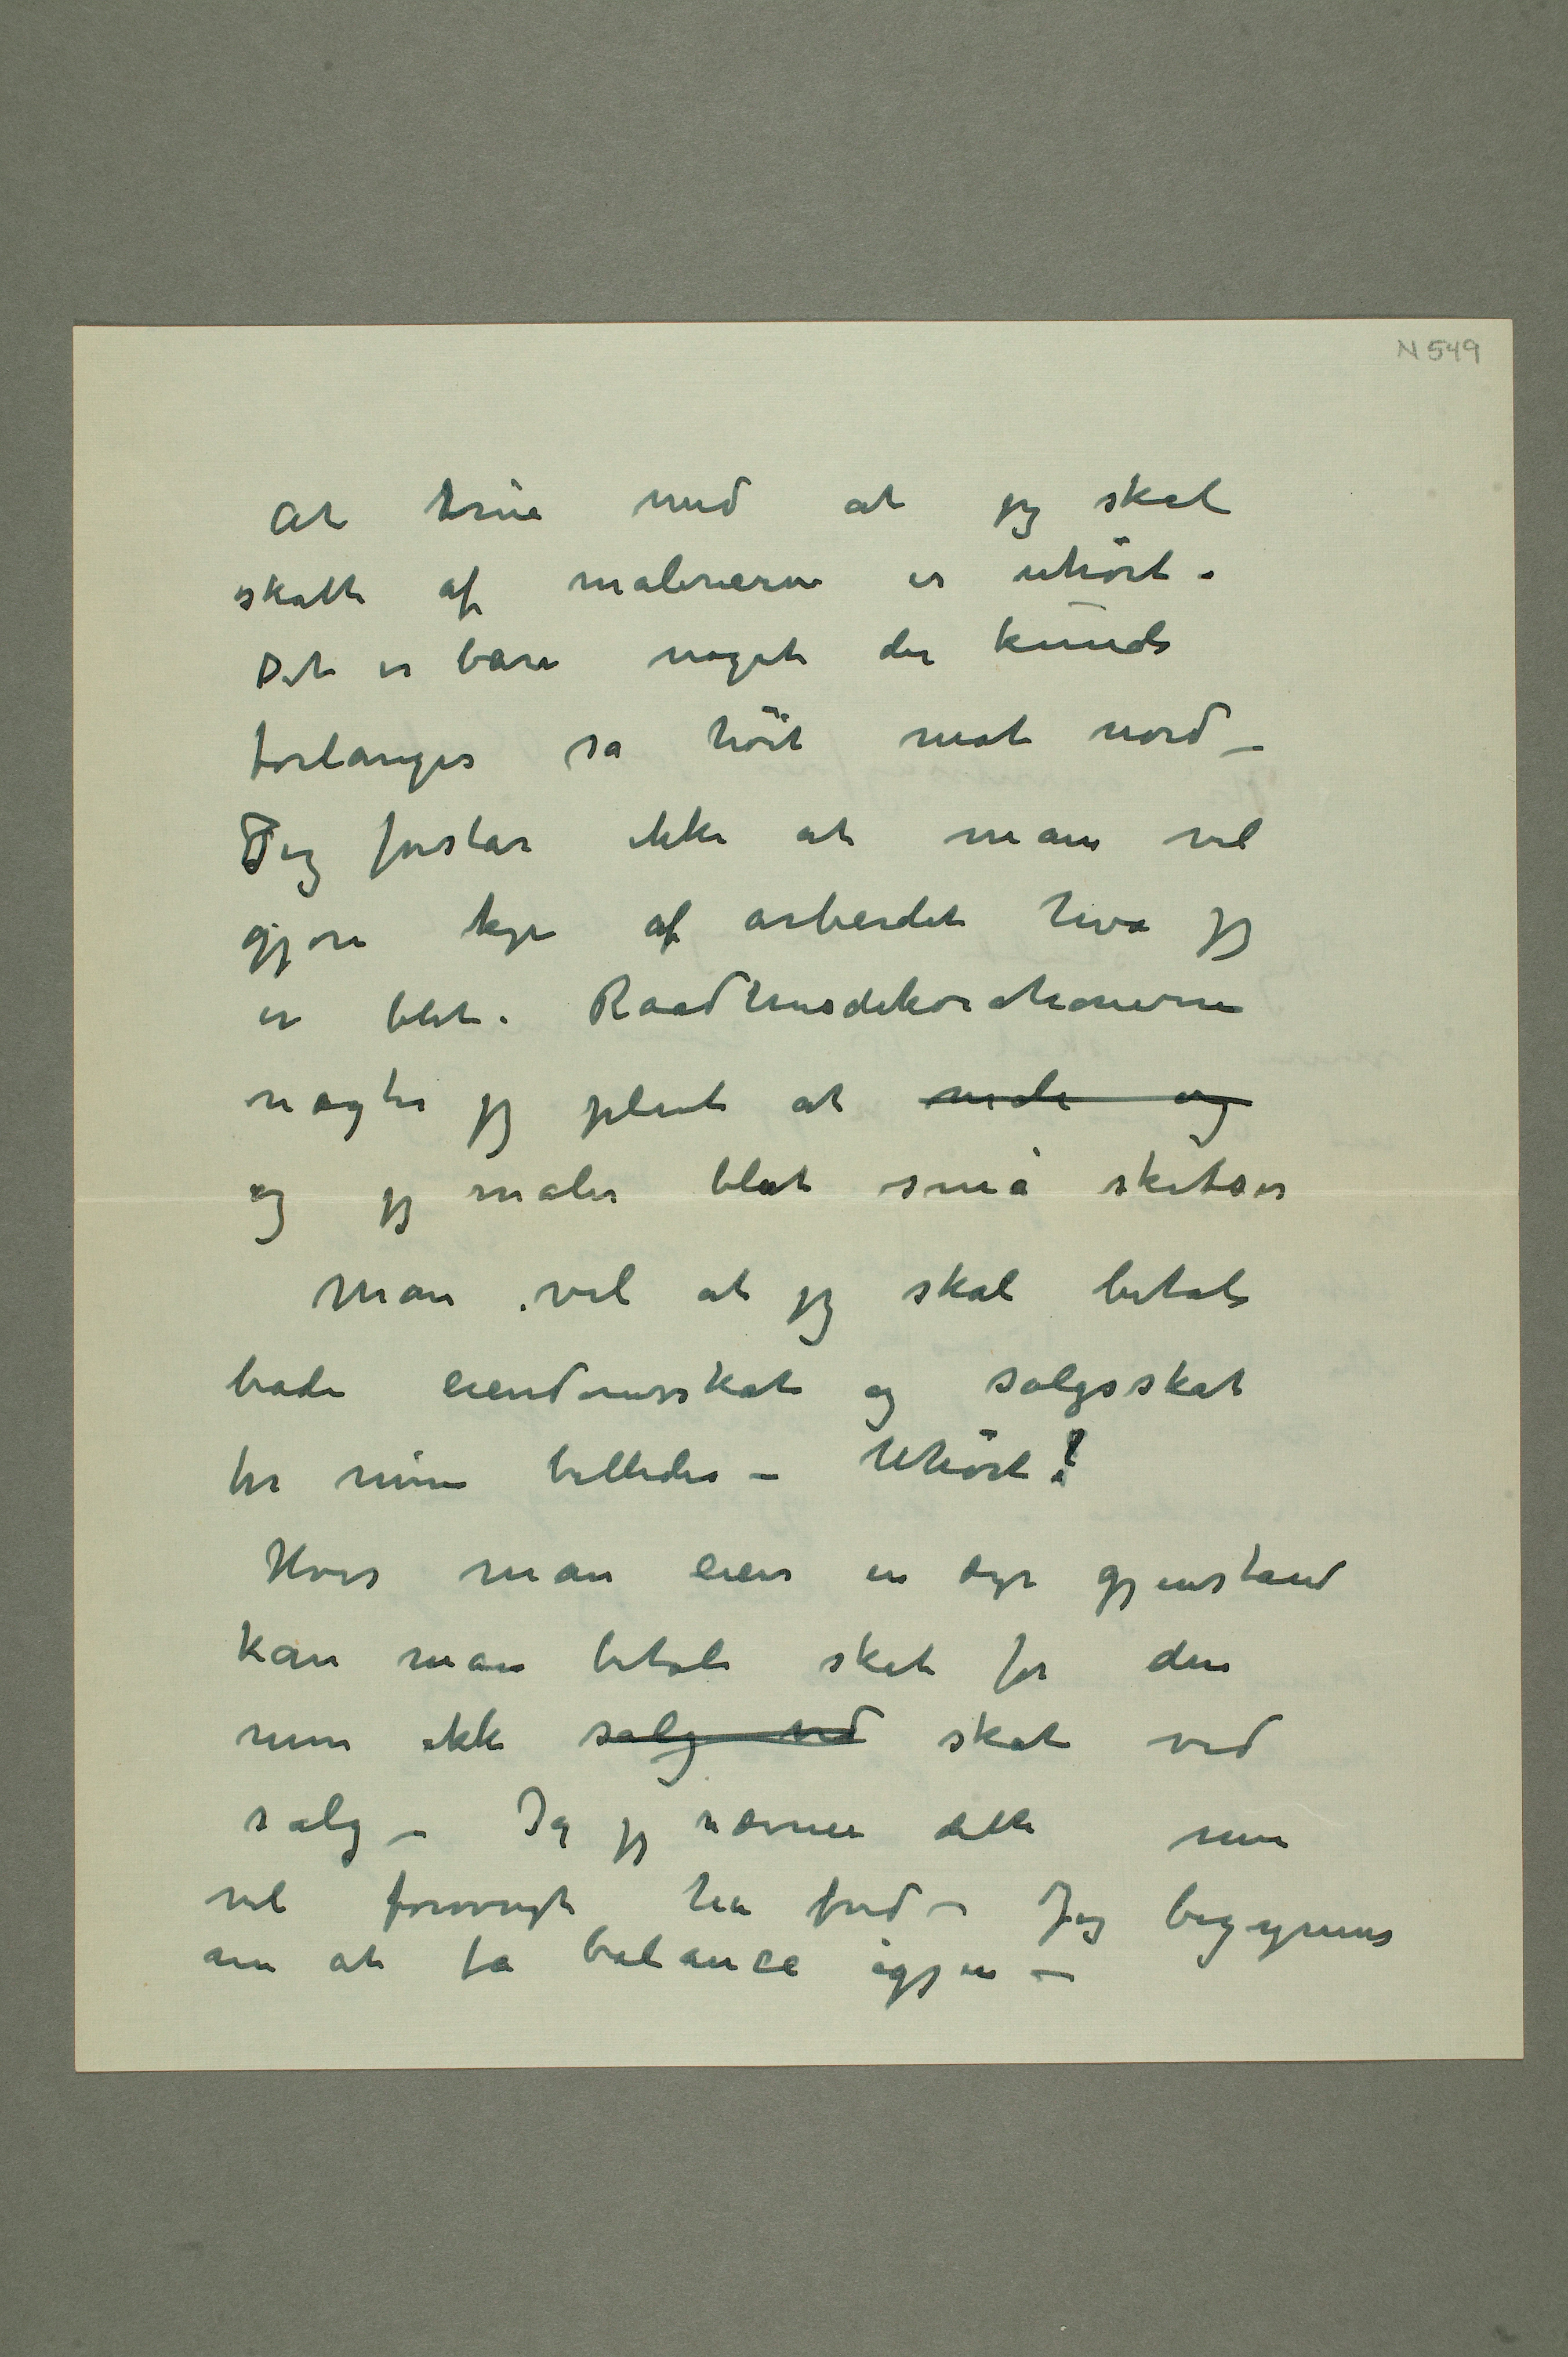 N 549
At true med at jeg skal
skatte af malerierne er uhørt.
Det er bare noget der kunde
forlanges så høit mot nord –
Jeg forstår ikke at man vil
gjøre af arbeidet hva jeg
er blet. Raadhusdekorationerne
nægter jeg plent at male og
og jeg maler blot små skitser
Man vil at jeg skal betale
både eiendomsskat og salgsskat
for mine billeder – Uhørt!
Hvis man eier en dyr gjenstand
kan man betale skat for den
men ikke salg ved skat ved
salg – Jeg jeg nævner dette men
vil forøvrigt ha fred – Jeg begynner
om at få balance igjen –